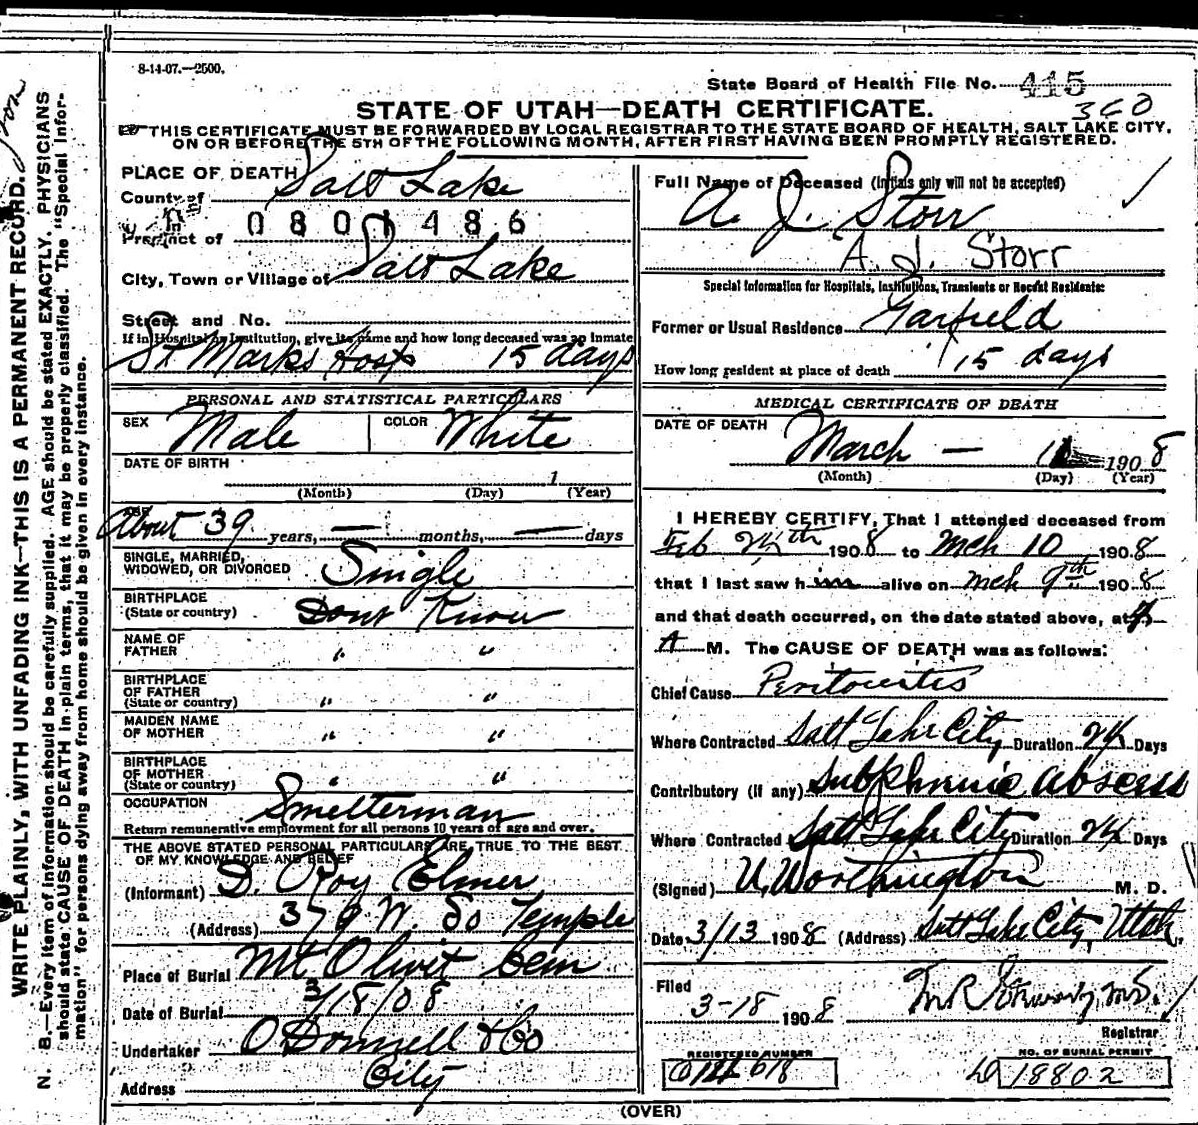 8-14-07.—2500.
State Board of Health File No. 445
360
STATE OF UTAH—DEATH CERTIFICATE.
THIS CERTIFICATE MUST BE FORWARDED BY LOCAL REGISTRAR TO THE STATE BOARD OF HEALTH, SALT LAKE CITY,
ON OR BEFORE THE 5TH OF THE FOLLOWING MONTH, AFTER FIRST HAVING BEEN PROMPTLY REGISTERED.
WRITE PLAINLY, WITH UNFADING INK—THIS IS A PERMANENT RECORD.
N. B.—Every item of information should be carefully supplied. AGE should be stated EXACTLY. PHYSICIANS
should state CAUSE OF DEATH in plain terms, that it may be properly classified. The "Special Infor-
mation" for persons dying away from home should be given in every instance.
PLACE OF DEATH
County of Salt Lake
Precinct of 0801486
City, Town or Village of Salt Lake
Street and No.
If in Hospital or Institution, give its name and how long deceased was an inmate
St Marks Hosp 15 days
PERSONAL AND STATISTICAL PARTICULARS
SEX Male COLOR White
DATE OF BIRTH
1
(Month) (Day) (Year)
AGE
About 39 years, — months, — days
SINGLE, MARRIED,
WIDOWED, OR DIVORCED Single
BIRTHPLACE
(State or country) Dont Know
NAME OF
FATHER " "
BIRTHPLACE
OF FATHER
(State or country) " "
MAIDEN NAME
OF MOTHER " "
BIRTHPLACE
OF MOTHER
(State or country) " "
OCCUPATION Smelterman
Return remunerative employment for all persons 10 years of age and over.
THE ABOVE STATED PERSONAL PARTICULARS ARE TRUE TO THE BEST
OF MY KNOWLEDGE AND BELIEF
(Informant) D. Roy Elmer
(Address) 379 W. So Temple
Place of Burial Mt Olivit Cem
Date of Burial 3/18/08
Undertaker O Donnell & Co
Address City
Full Name of Deceased (Initials only will not be accepted)
A. J. Storr
A. J. Storr
Special Information for Hospitals, Institutions, Transients or Recent Residents:
Former or Usual Residence Garfield
How long resident at place of death 15 days
MEDICAL CERTIFICATE OF DEATH
DATE OF DEATH
March — 1908
(Month) (Day) (Year)
I HEREBY CERTIFY, That I attended deceased from
Feb 24th 1908 to Mch 10 1908
that I last saw him alive on Mch 9th 1908
and that death occurred, on the date stated above, at
A M. The CAUSE OF DEATH was as follows:
Chief Cause Peritonitis
Where Contracted Salt Lake City Duration 24 Days
Contributory (if any) Subphrenic Abscess
Where Contracted Salt Lake City Duration 24 Days
(Signed) U. Worthington M. D.
Date 3/13 1908 (Address) Salt Lake City, Utah.
Filed
3-18 1908
Registrar
REGISTERED NUMBER
618
NO. OF BURIAL PERMIT
18802
(OVER)